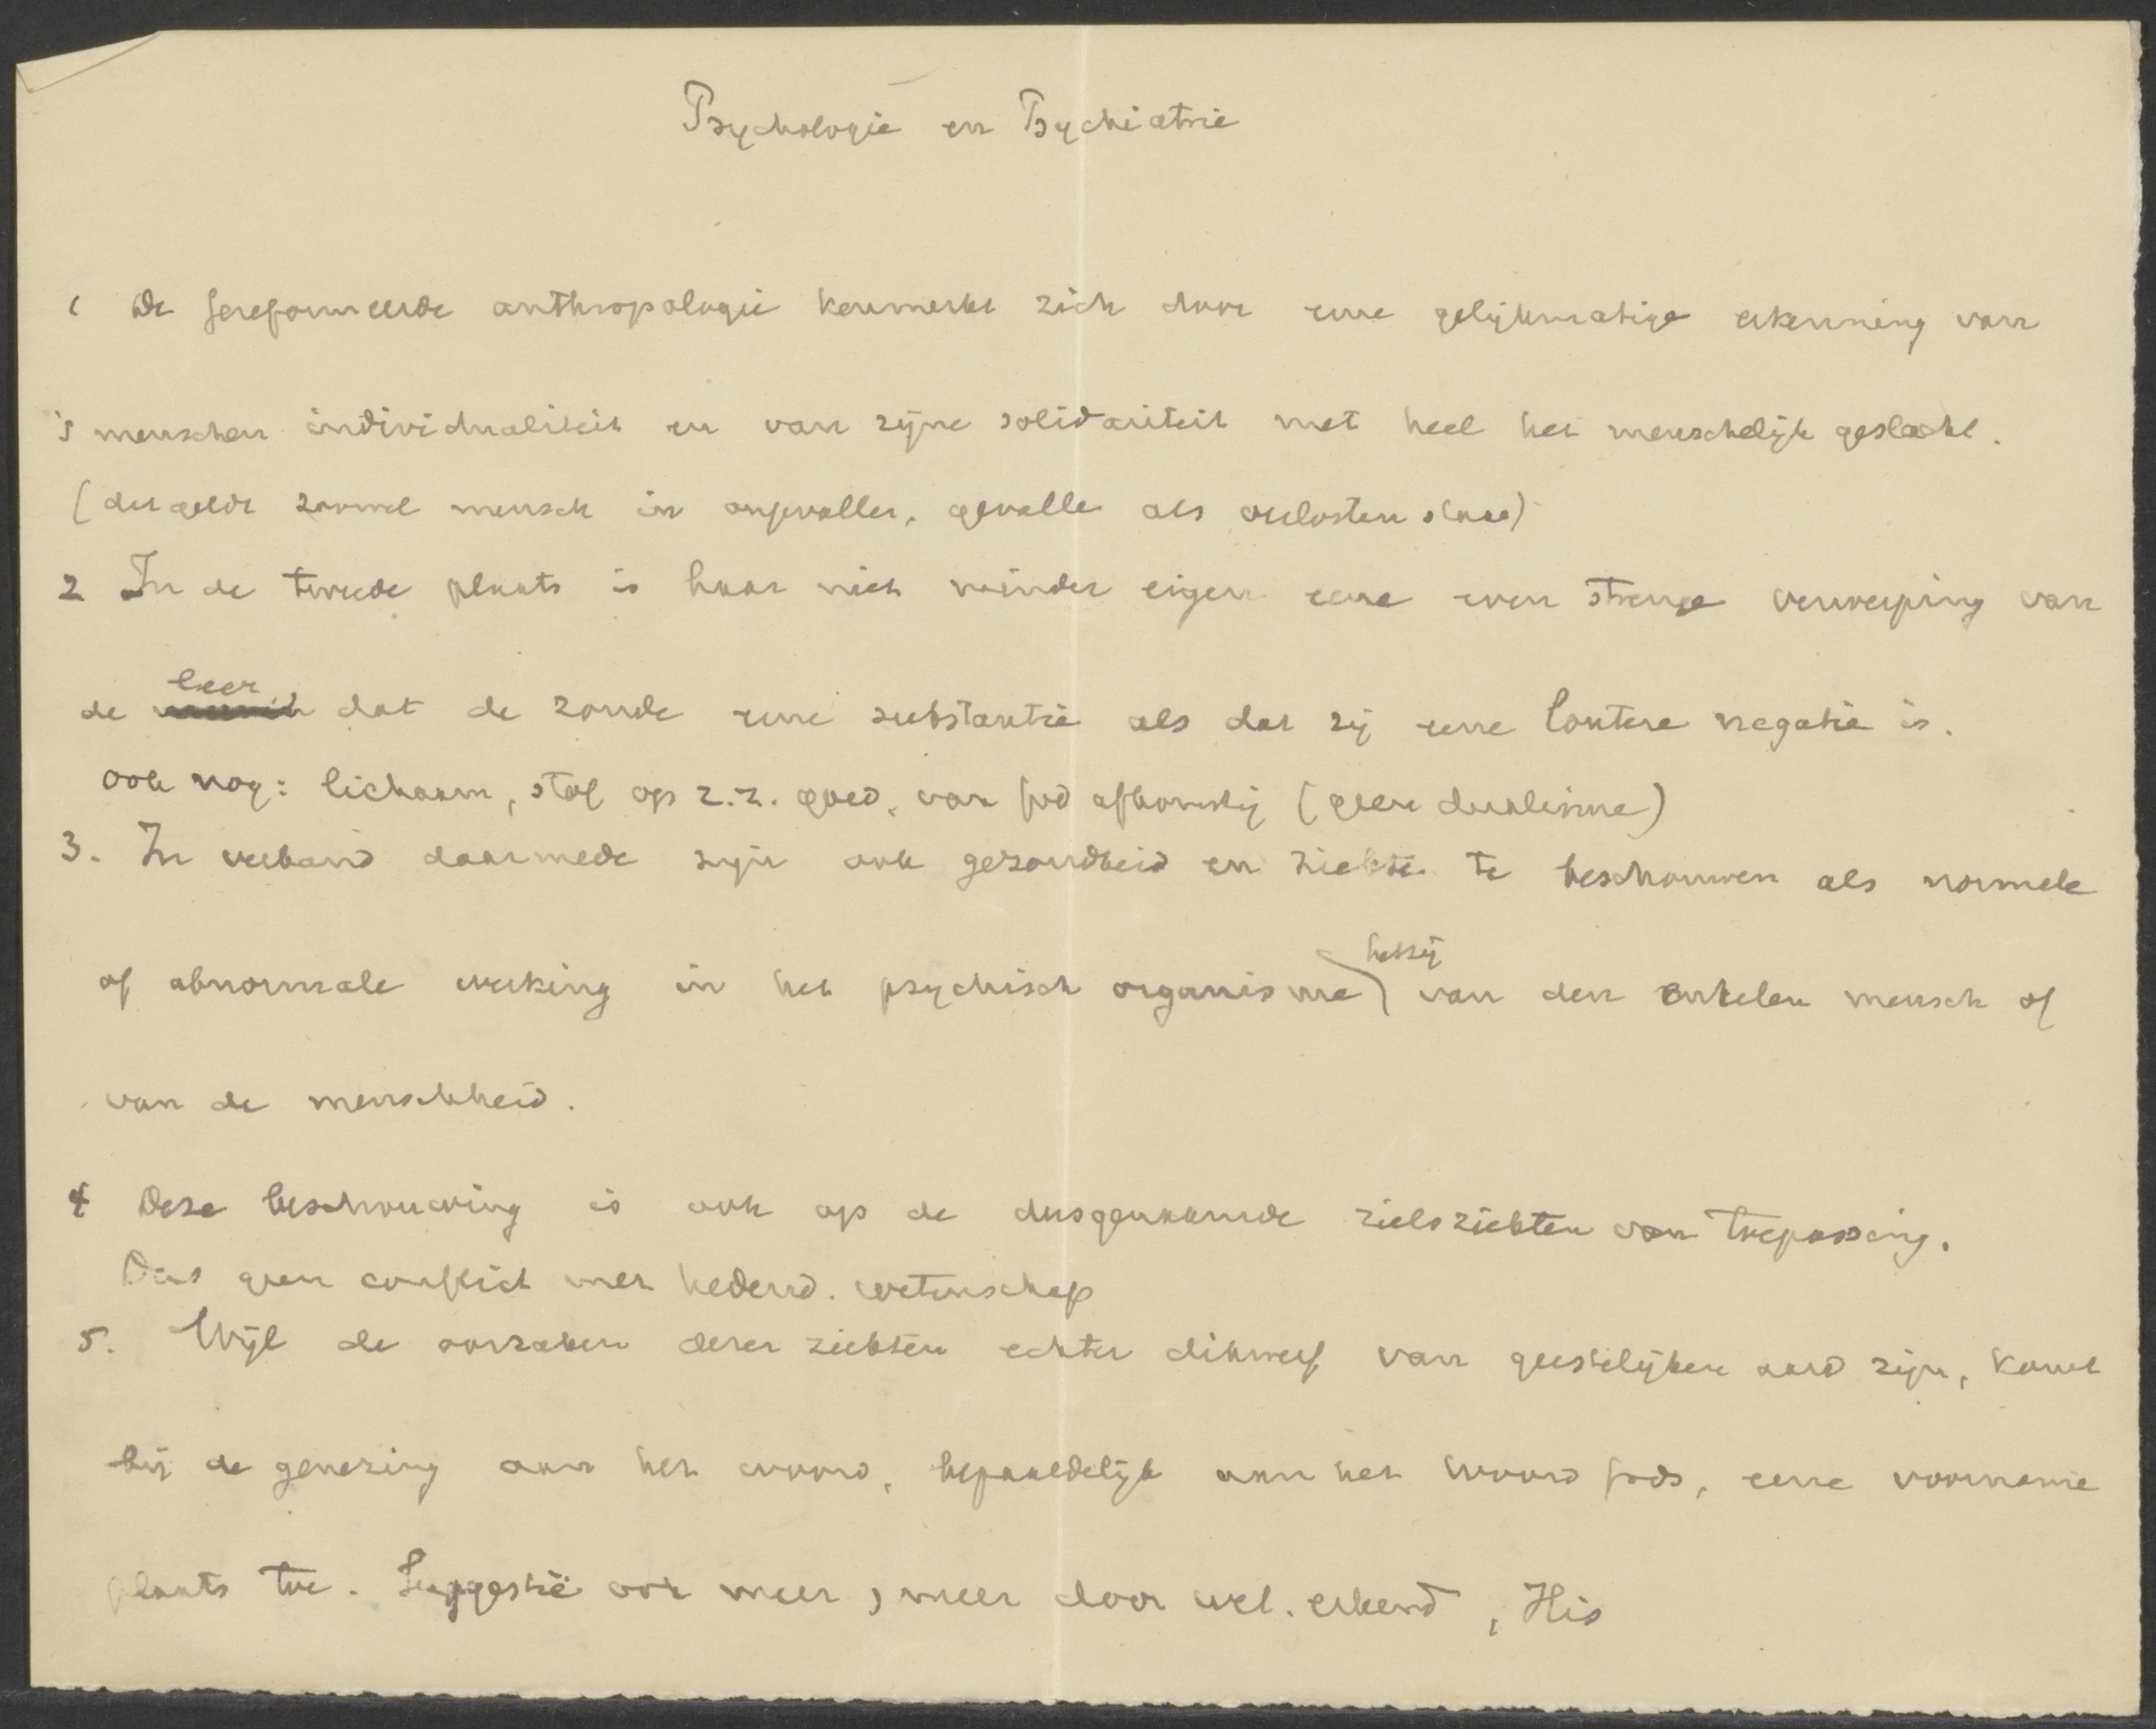 Psychologie en Psychiatrie
1 De Gereformeerde anthropologie kenmerkt zich door eene gelijkmatige erkenning van
's menschen individualiteit en van zijne solidariteit met heel het menschelijk geslacht.
(dit geldt zoowel mensch in ongevallen, gevallen als verlosten staat)
2 In de tweede plaats is haar niet minder eigen eene even strenge verwerping van
de leer dat de zonde eene substantie als dat zij eene loutere negatie is.
ook nog: lichaam, stof op z.z. goed, van God afkomstig (geen dualisme)
3. In verband daarmede zijn ook gezondheid en ziekte te beschouwen als normale
of abnormale werking in het psychisch organisme hetzij van den enkelen mensch of
van de menschheid.
4 Deze beschouwing is ook op de dusgenaamde zielsziekten van toepassing.
Dus geen conflict met hedend. wetenschap
5. Wijl de oorzaken dezer ziekten echter dikwerf van geestelijken aard zijn, komt
bij de genezing aan het woord, bepaaldelijk aan het Woord Gods, eene voorname
plaats toe. Suggestie ook meer , meer door wet. erkend , His